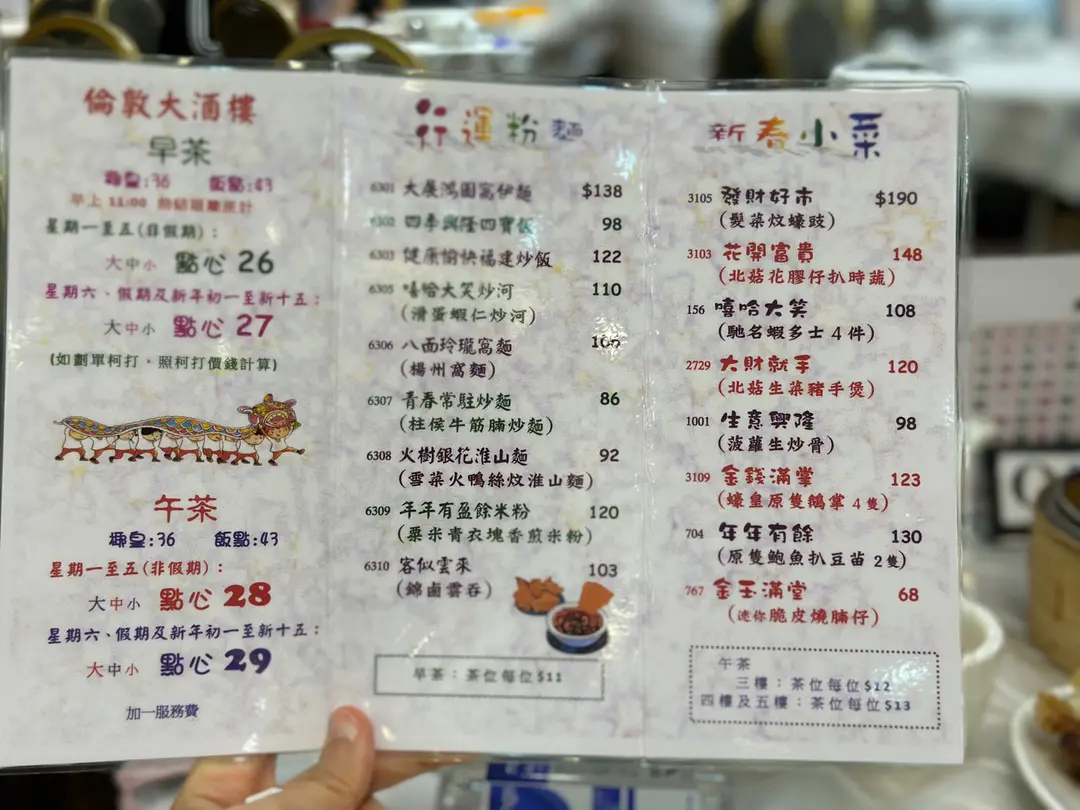 倫敦大酒樓
早茶
揀皇:36 飯點:43
早上 11:00
星期一至五(非假期):
大中小 點心 26
星期六、假期及新年初一至新十五:
大中小 點心 27
(如劃單柯打，照柯打價錢計算)
午茶
揀皇:36 飯點:43
星期一至五(非假期):
大中小 點心 28
星期六、假期及新年初一至新十五:
大中小 點心 29
加一服務費
行運粉麵
6301 大展鴻圖窩伊麵 $138
6302 四季興隆四寶飯 98
6303 健康愉快福建炒飯 122
6305 嘻哈大笑炒河 110
(滑蛋蝦仁炒河)
6306 八面玲瓏窩麵
(楊州窩麵)
6307 青春常駐炒麵 86
(柱侯牛筋腩炒麵)
6308 火樹銀花淮山麵 92
(雪菜火鴨絲炆淮山麵)
6309 年年有盈餘米粉 120
(粟米青衣塊香煎米粉)
6310 客似雲來 103
(錦鹵雲吞)
早茶：茶位每位$11
新春小菜
3105 發財好市 $190
(髮菜炆蠔豉)
3103 花開富貴 148
(北菇花膠仔扒時蔬)
156 嘻哈大笑 108
(馳名蝦多士 4 件)
2729 大財就手 120
(北菇生菜豬手煲)
1001 生意興隆 98
(菠蘿生炒骨)
3109 金錢滿掌 123
(蠔皇原隻鵝掌 4 隻)
704 年年有餘 130
(原隻鮑魚扒豆苗 2隻)
767 金玉滿堂 68
(迷你脆皮燒腩仔)
午茶
三樓：茶位每位$12
四樓及五樓：茶位每位$13